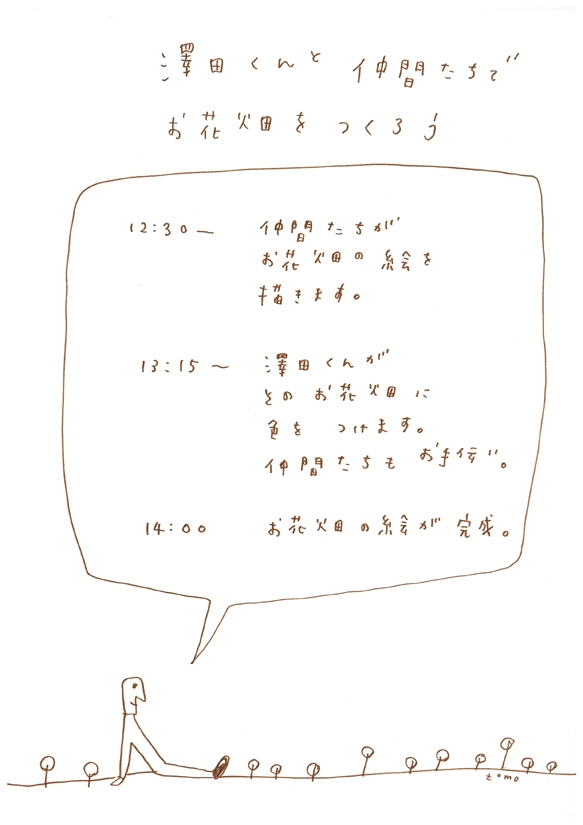 澤田くんと 仲間たちで
お花畑を つくろう
12:30― 仲間たちが
お花畑の絵を
描きます。
13:15～ 澤田くんが
そのお花畑に
色を つけます。
仲間たちも お手伝い。
14:00 お花畑の絵が 完成。
tomo